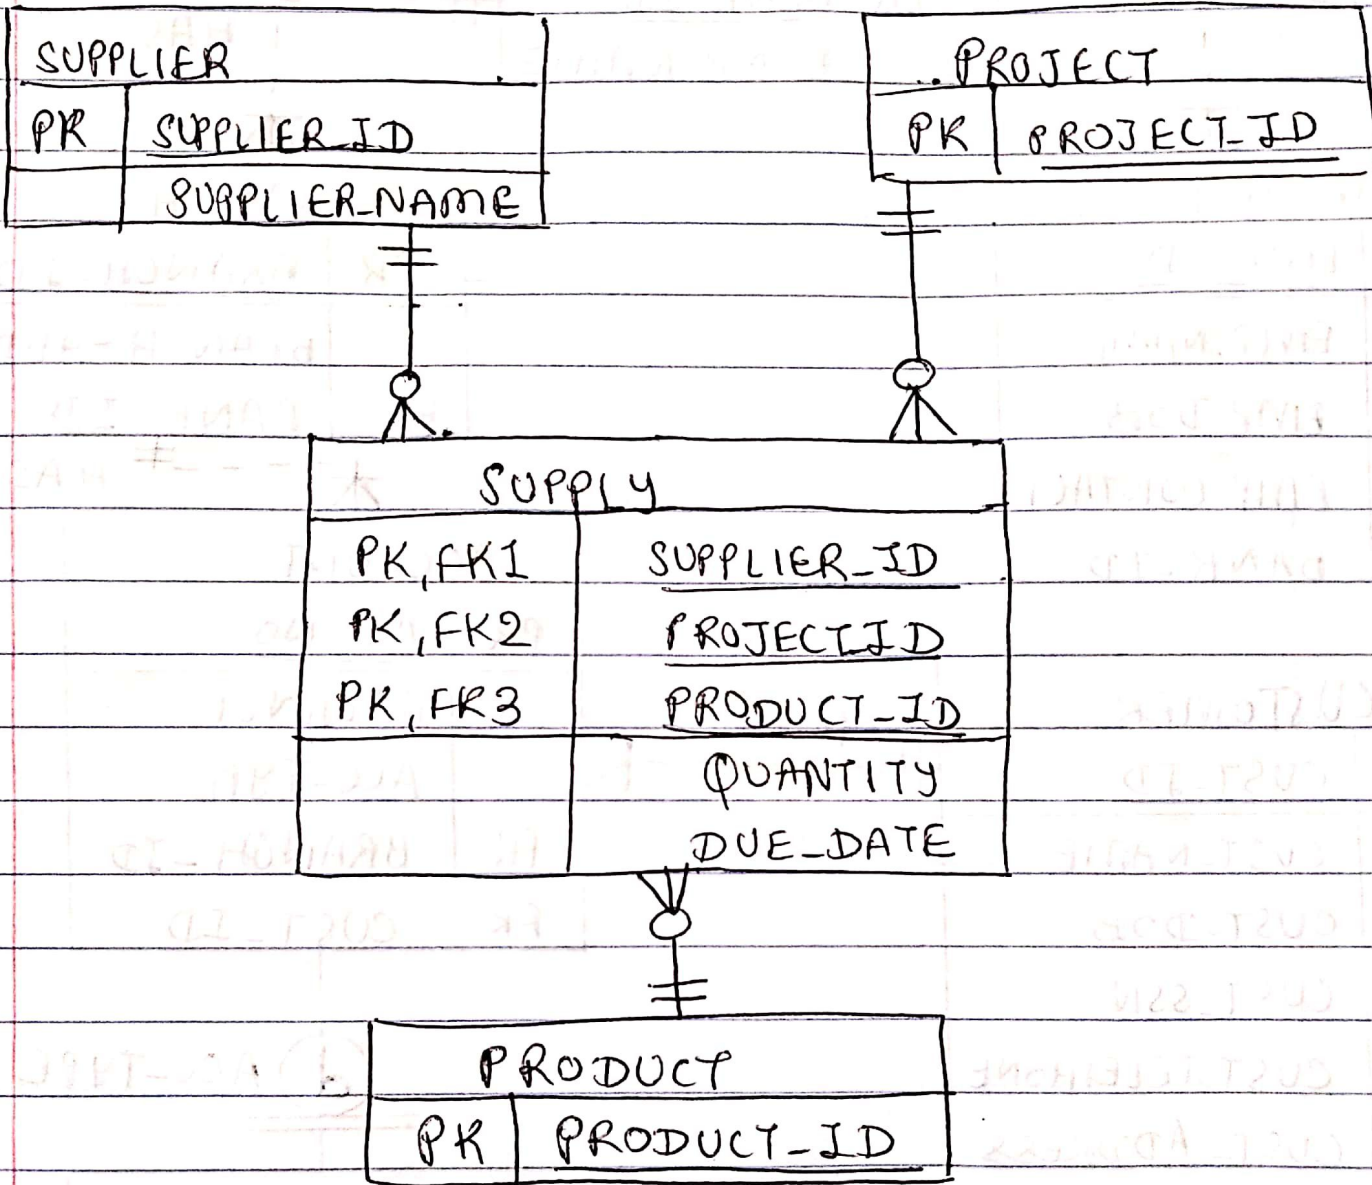 SUPPLIER
PK SUPPLIER_ID
SUPPLIER_NAME
PROJECT
PK PROJECT_ID
SUPPLY
PK, FK1 SUPPLIER_ID
PK, FK2 PROJECT_ID
PK, FK3 PRODUCT_ID
QUANTITY
DUE_DATE
PRODUCT
PK PRODUCT_ID